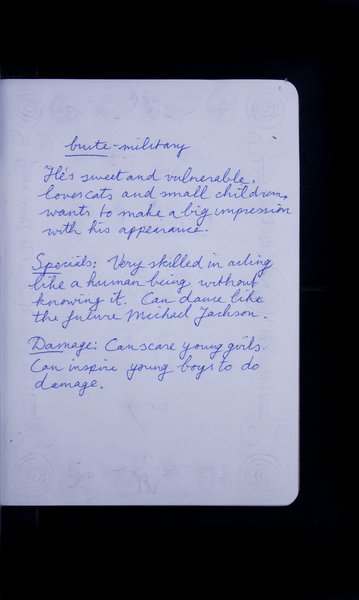 brute-military
He's sweet and vulnerable,
loves cats and small children,
wants to make a big impression
with his appearance.
Specials: Very skilled in acting
like a human being without
knowing it. Can dance like
the future Michael Jackson.
Damage: Can scare young girls.
Can inspire young boys to do
damage.